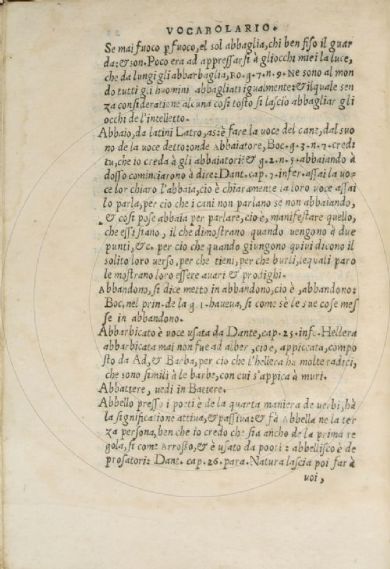 VOCABOLARIO.
Se mai fuoco ꝑ fuoco, el sol abbaglia, chi ben fiso il guar
da: & son. Poco era ad appressarsi à gliocchi miei la luce,
che da lungi gli abbarbaglia, Bo. g. 7. n. 9. Ne sono al mon
do tutti gli huomini abbagliati igualmente: & il quale sen
za consideratione alcuna così tosto si lascio abbagliar gli
occhi de l'intelletto.
Abbaio, da latini Latro, as: è fare la uoce del cane, dal suo
no de la uoce detto: onde Abbaiatore, Boc. g. 3. n. 7. credi
tu, che io creda à gli abbaiatori & g. 2. n. 5. abbaiando à
dosso cominciarono à dire: Dant. cap. 7. infer. assai la uo
ce lor chiaro l'abbaia, cio è chiaramente la loro uoce assai
lo parla, per cio che i cani non parlano se non abbaiando,
& cosi pose abbaia per parlare, cio è, manifestare quello,
che essi siano, il che dimostrano quando uengono à due
punti, &c. per cio che quando giungono quiui dicono il
solito loro uerso, per che tieni, per che burli, lequali paro
le mostrano loro essere auari & prodighi.
Abbandono, si dice metto in abbandono, cio è, abbandono:
Boc. nel prin. de la g. 1. haueua, si come se le sue cose mes
se in abbandono.
Abbarbicato è uoce usata da Dante, cap. 25. infe. Hellera
abbarbicata mai non fue ad alber, cio è, appiccata, compo
sto da Ad, & Barba, per cio che l'hellera ha molte radici,
che sono simili à le barbe, con cui s'appica à muri.
Abbattere, uedi in Battere.
Abbello presso i poeti è de la quarta maniera de uerbi, hà
la significatione attiua, & passiua: & fà Abbella ne la ter
za persona, ben che io credo che sia ancho de la prima re
gola, si come Arrosto, & è usato da poeti: abbellisco è de
prosatori: Dant. cap. 26. para. Natura lascia poi far à
uoi,